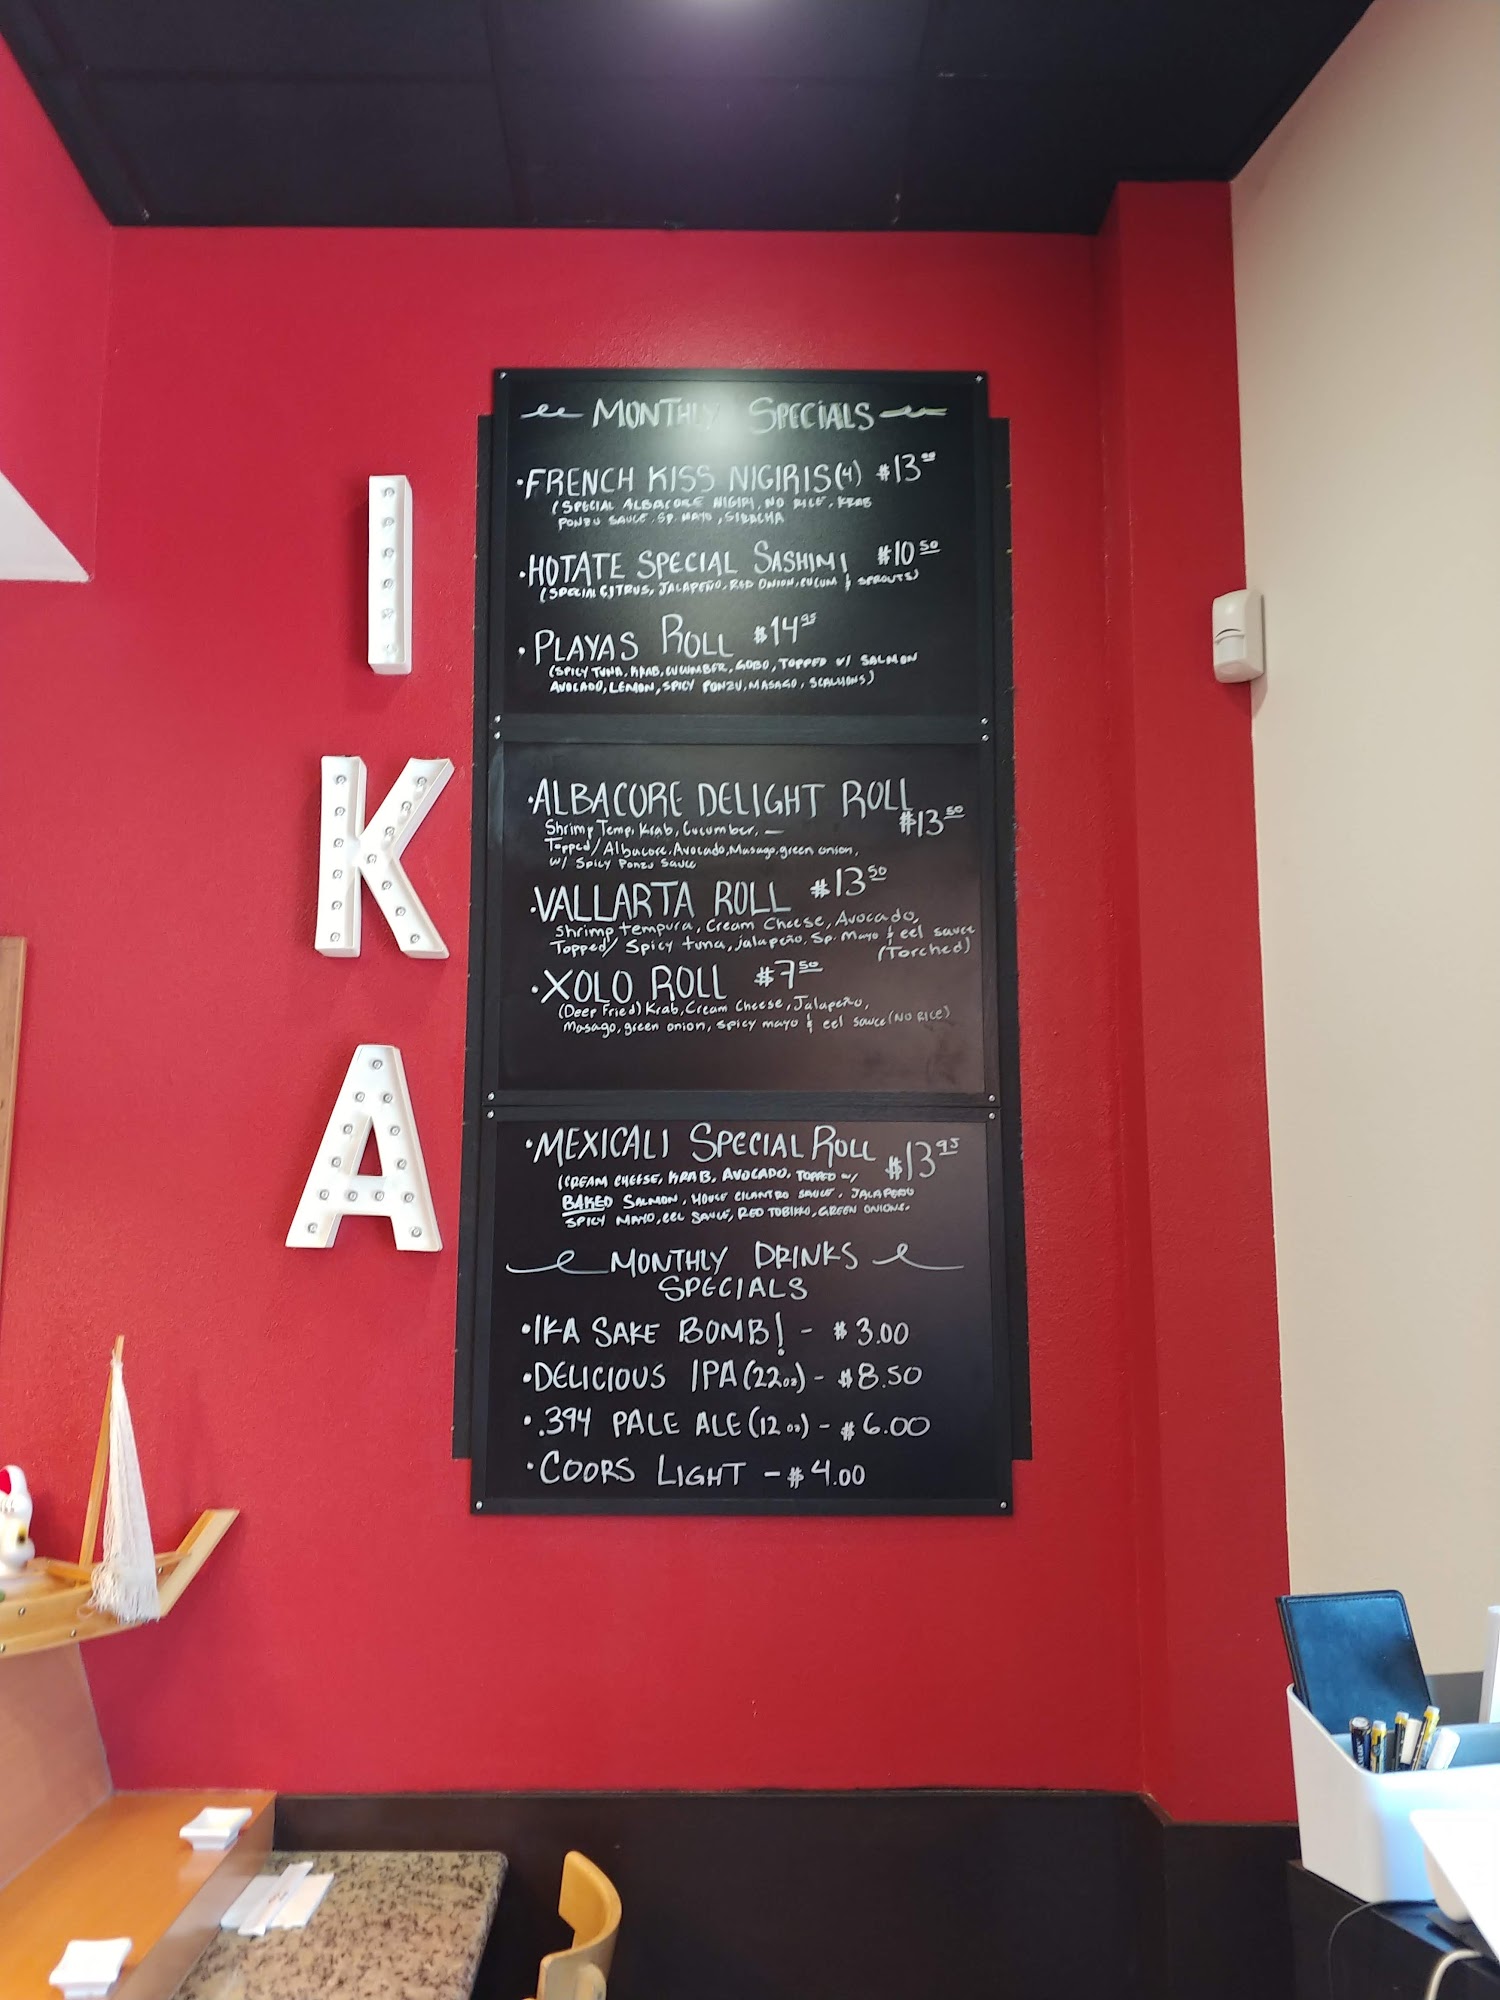 IKA
MONTHLY SPECIALS
• FRENCH KISS NIGIRIS (4) $13.00
(SPECIAL ALBACORE NIGIRI, NO RICE, KRAB
PONZU SAUCE, SP. MAYO, SIRACHA
• HOTATE SPECIAL SASHIMI $10.50
(SPECIAL CITRUS, JALAPEÑO, RED ONION, CUCUM & SPROUTS)
• PLAYAS ROLL $14.95
(SPICY TUNA, KRAB, CUCUMBER, GOBO, TOPPED W/ SALMON
AVOCADO, LEMON, SPICY PONZU, MASAGO, SCALLIONS)
• ALBACORE DELIGHT ROLL
$13.50
Shrimp Temp, Krab, Cucumber, —
Topped/ Albacore, Avocado, Masago, green onion,
w/ Spicy Ponzu Sauce
• VALLARTA ROLL $13.50
Shrimp tempura, Cream Cheese, Avocado,
Topped/ Spicy tuna, jalapeño, Sp. Mayo & eel sauce
(Torched)
• XOLO ROLL $7.50
(Deep Fried) Krab, Cream Cheese, Jalapeño,
Masago, green onion, spicy mayo & eel sauce (NO RICE)
• MEXICALI SPECIAL ROLL $13.95
(CREAM CHEESE, KRAB, AVOCADO, TOPPED W/
BAKED SALMON, HOUSE CILANTRO SAUCE, JALAPEÑO
SPICY MAYO, EEL SAUCE, RED TOBIKO, GREEN ONIONS.
MONTHLY DRINKS
SPECIALS
• IKA SAKE BOMB! - $3.00
• DELICIOUS IPA (22oz) - $8.50
• .394 PALE ALE (12 oz) - $6.00
• COORS LIGHT - $4.00